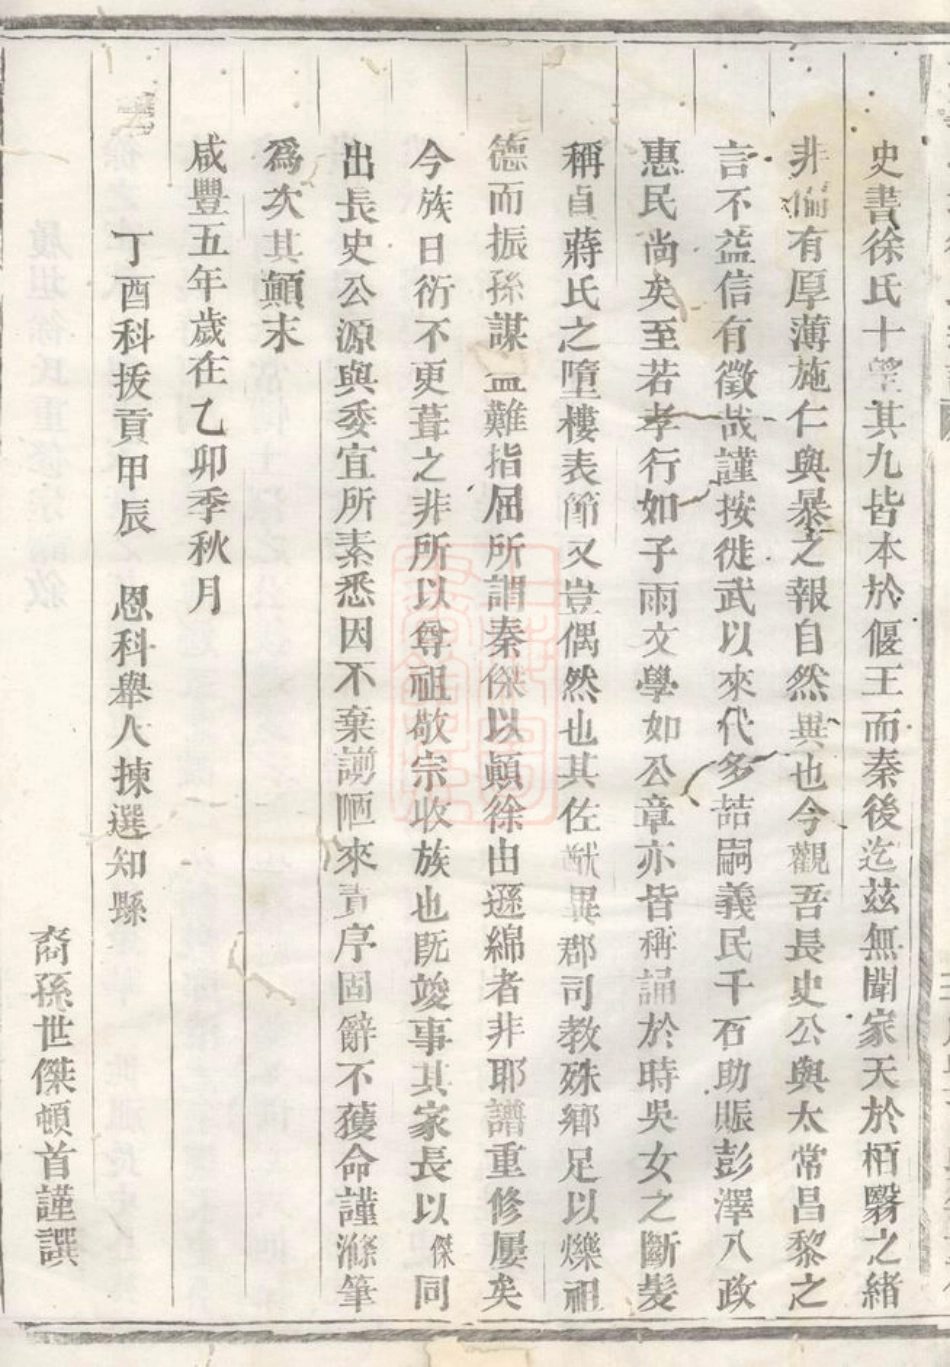 史書徐氏十望其九皆本於偃王而秦後迄茲無聞家天於栢翳之緒
非偏有厚薄施仁與暴之報自然異也今觀吾長史公與太常昌黎之
言不益信有徵哉謹按徙武以來代多喆嗣義民千石助賑彭澤八政
惠民尚矣至若孝行如子雨文學如公章亦皆稱誦於時吳女之斷髮
稱貞蔣氏之墮樓表節又豈偶然也其佐猷異郡司教殊鄉足以爍祖
德而振孫謀益難指屈所謂秦傑以顚徐由遜綿者非耶譜重修屢矣
今族日衍不更葺之非所以尊祖敬宗收族也旣竣事其家長以傑同
出長史公源與委宜所素悉因不棄謭陋來責序固辭不獲命謹滌筆
爲次其顚末
咸豐五年歲在乙卯季秋月
丁酉科拔貢甲辰 恩科舉人揀選知縣
裔孫世傑頓首謹譔